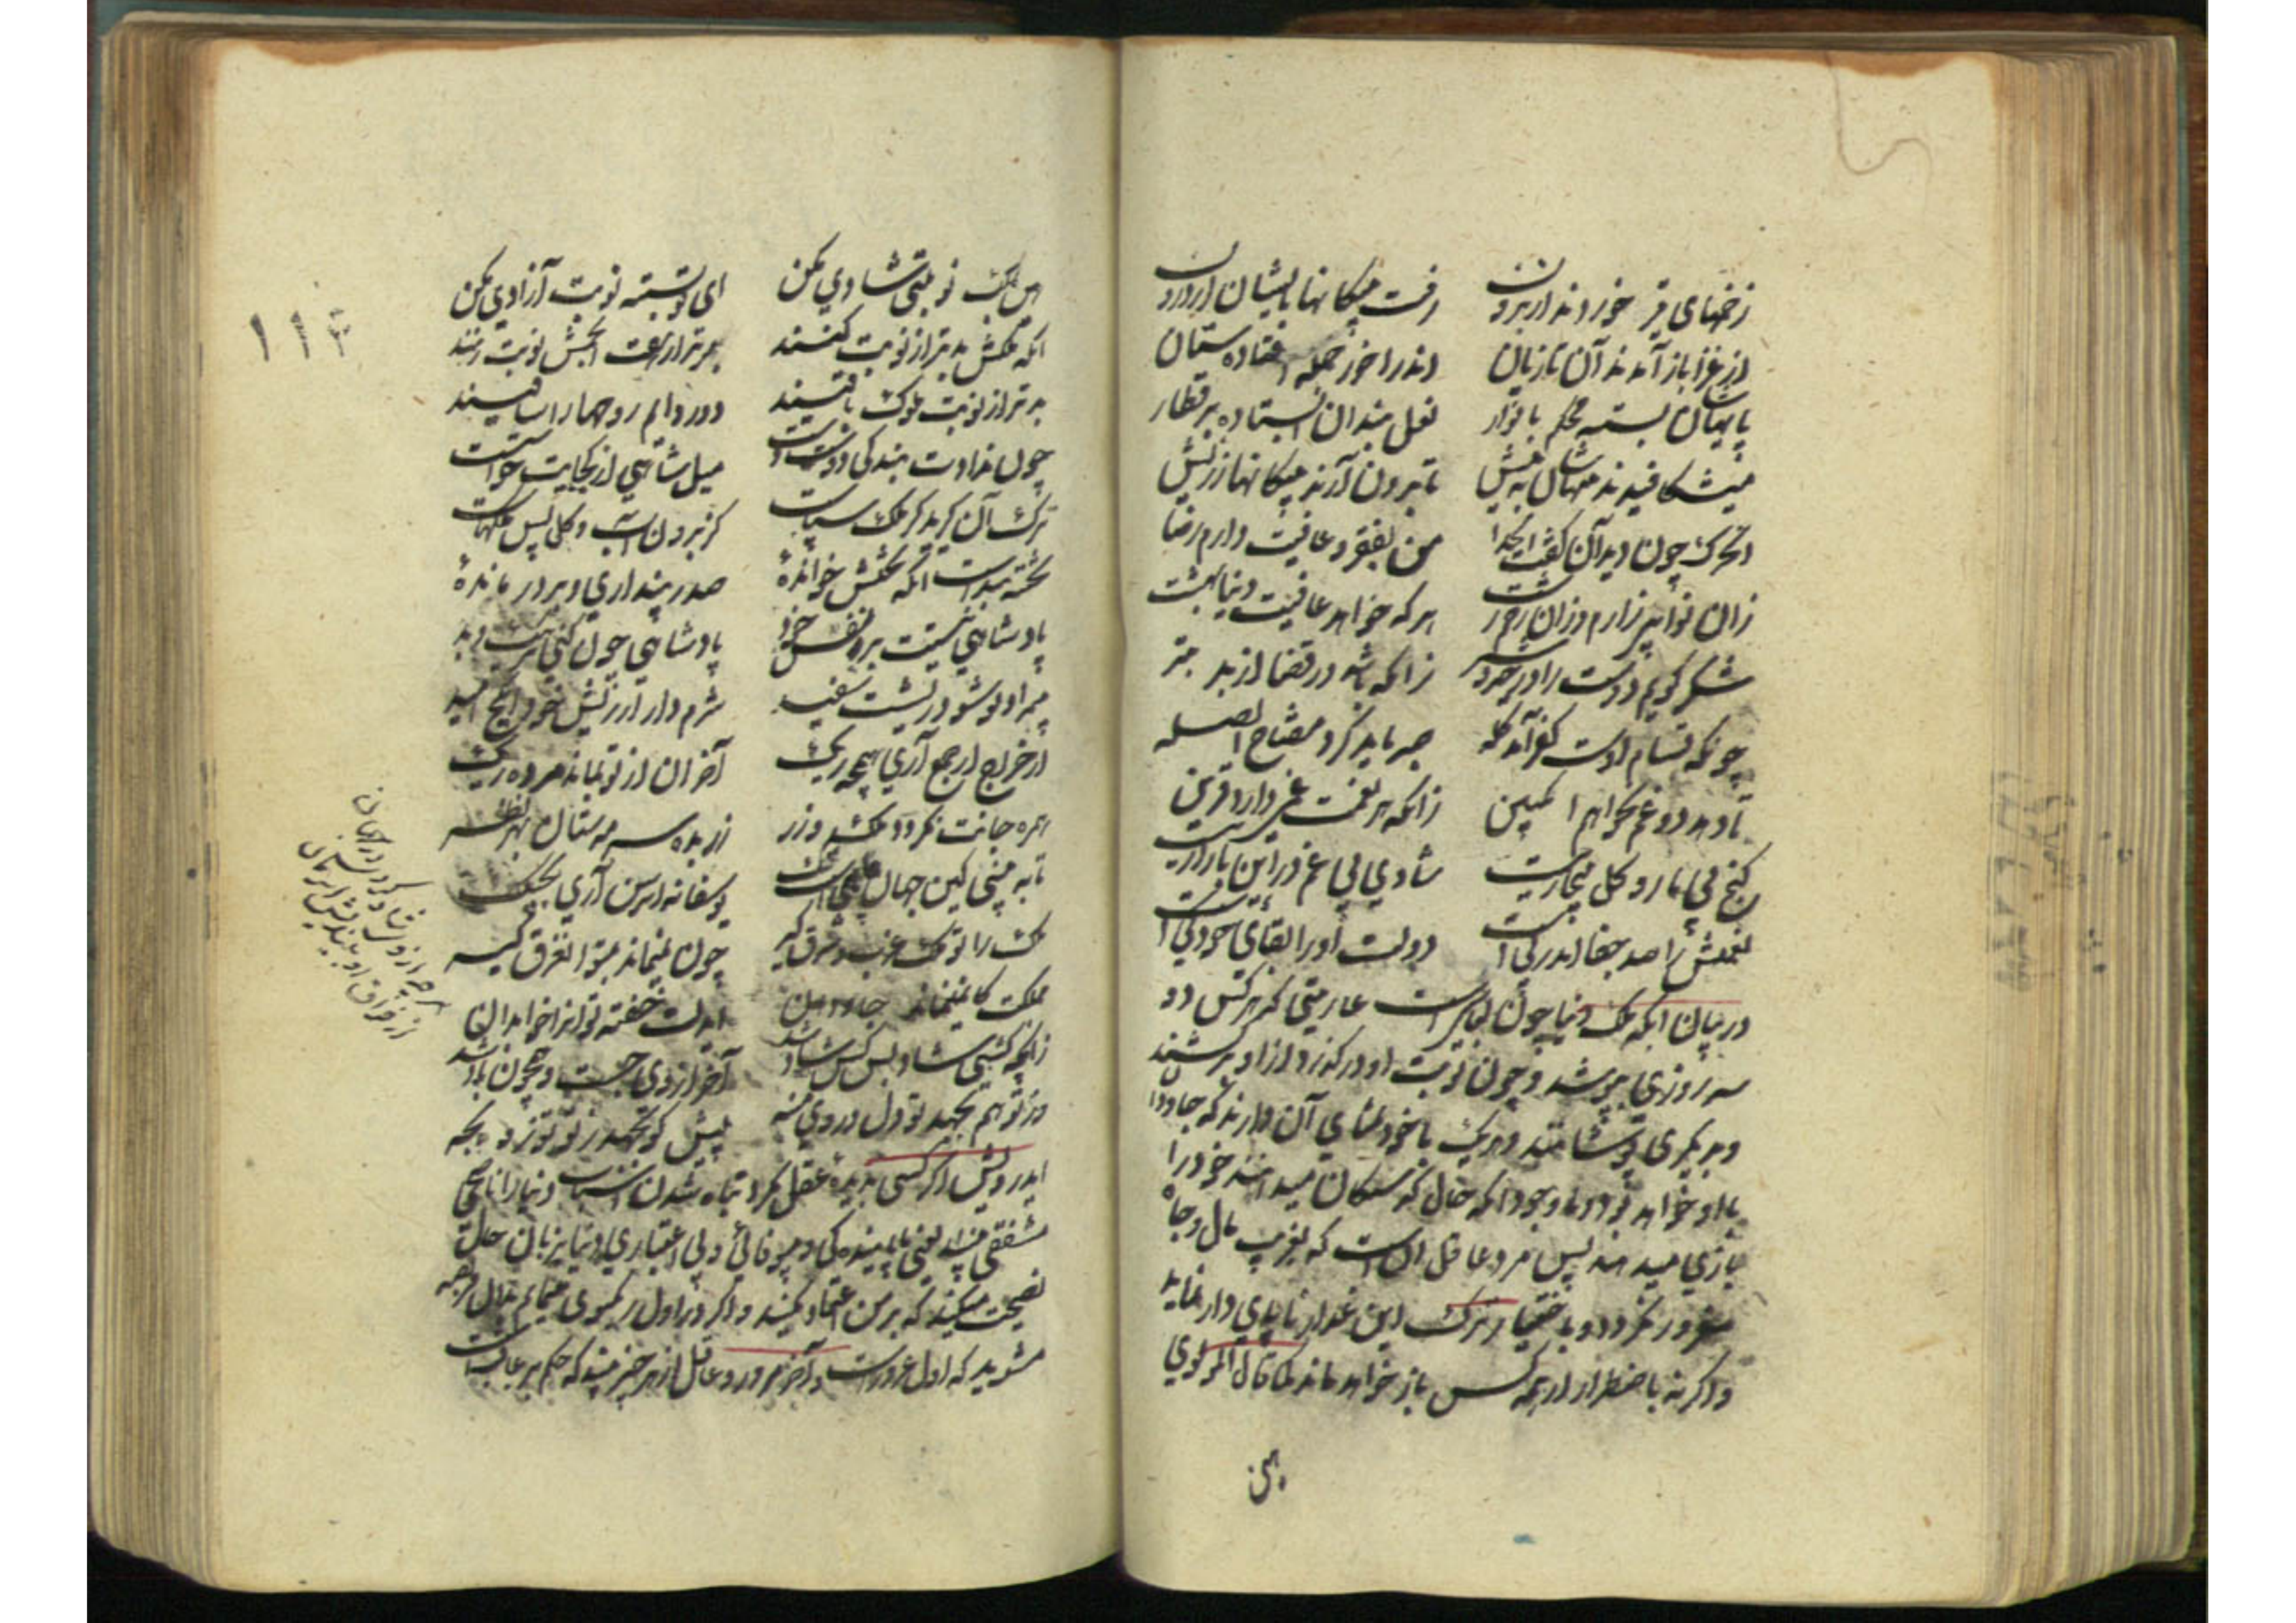 زخمهای تیر خوردند از برون رفت پیکانها بایشان اندرون
از غزا باز آمدند آن تازیان اندر آخر جمله افتاده ستان
پایهاشان بسته محکم با نوار نعل بندان ایستاده بر قطار
میشکافیدند تنهاشان به نیش تا برون آرند پیکانها ز ریش
آن خرک چون دید آن گفت ای خدا من بفقر و عافیت دارم رضا
زان نوا بیزارم وزان زخم زشت هر که خواهد عافیت دنیا بهشت
شکر گویم دوست را در خیر و شر زانکه باشد در قضا از بد بتر
چونکه قسام اوست کفر آمد گله صبر باید کرد مفتاح الصله
تا دهد دوغم نخواهم انگبین زانکه هر نعمت غمی دارد قرین
گنج بی مار و گل بیخار نیست شادی بی غم در این بازار نیست
نعمتش را صد جفا اندر پی است دولت او را
در بیان آنکه ملک دنیا چون لباس است عاریتی که هر کس دو
سه روزی پوشد و چون نوبت او در گذرد از او بر کشند
و بر دیگری پوشانند و هر یک با خود آن دارند که جاودان
با او خواهد بود و با وجود آنکه حال گذشتگان میدانند خود را
بازی میدهند پس مرد عاقل آن است که بفریب مال و جاه
مغرور نگردد و باختیار ترک این غدار ناپای دار نماید
و اگر نه باضطرار از همه کس باز خواهد ماند کما قال المولوی
هین
۱۱۳
هین بملک نوبتی شادی مکن ای تو بسته نوبت آزادی مکن
آنکه ملکش برتر از نوبت تنند برتر از هفت انجمش نوبت زنند
برتر از نوبت ملوک باقیند دور دایم روحها را ساقیند
چون ندادت بندگی دوست دست میل شاهی از کجایت خواست
ترک آن گیرید گر ملک سباست کز برون آب و گل بس ملکهاست
تخته بند است آنکه تختش خواندهٔ صدر پنداری و بر در ماندهٔ
پادشاهی نیستت بر ریش خود پادشاهی چون کنی بر نیک و بد
بی مراد تو شود ریشت سفید شرم دار از ریش خود ای کج امید
از خراج ار جمع آری زر چو ریگ آخر آن از تو بماند مرده ریگ
همره جانت نگردد ملک و زر زر بده سرمه ستان بهر نظر
تا به بینی کین جهان چاهی است تنگ یوسفانه آن رسن آری بچنگ
ملک را تو ملک غرب و شرق گیر چون نمیماند تو آنرا برق گیر
مملکت کان مینماند جاودان ای دلت خفته تو آنرا خواب دان
زانچه گشتی شاد بس کس شاد شد آخر از وی جست و همچون باد شد
از تو هم بجهد تو دل در وی منه پیش کو بجهد ز تو تو زو بجه
هر چه از وی شاد گردی در جهان
از فراق او بیندیش آن زمان
ای درویش اگر کسی بدیده عقل نگرد تباه شدن اسباب دنیا را ناصحی
مشفقی است یعنی ناپایندگی و بیوفائی و بی اعتباری دنیا بزبان حال
نصیحت میکند که بر من اعتماد مکنید و اگر در اول نیکوی
مشوید که اول غرور است و آخر مرور و عاقل از هر چیز که حکم بر عاقبت است